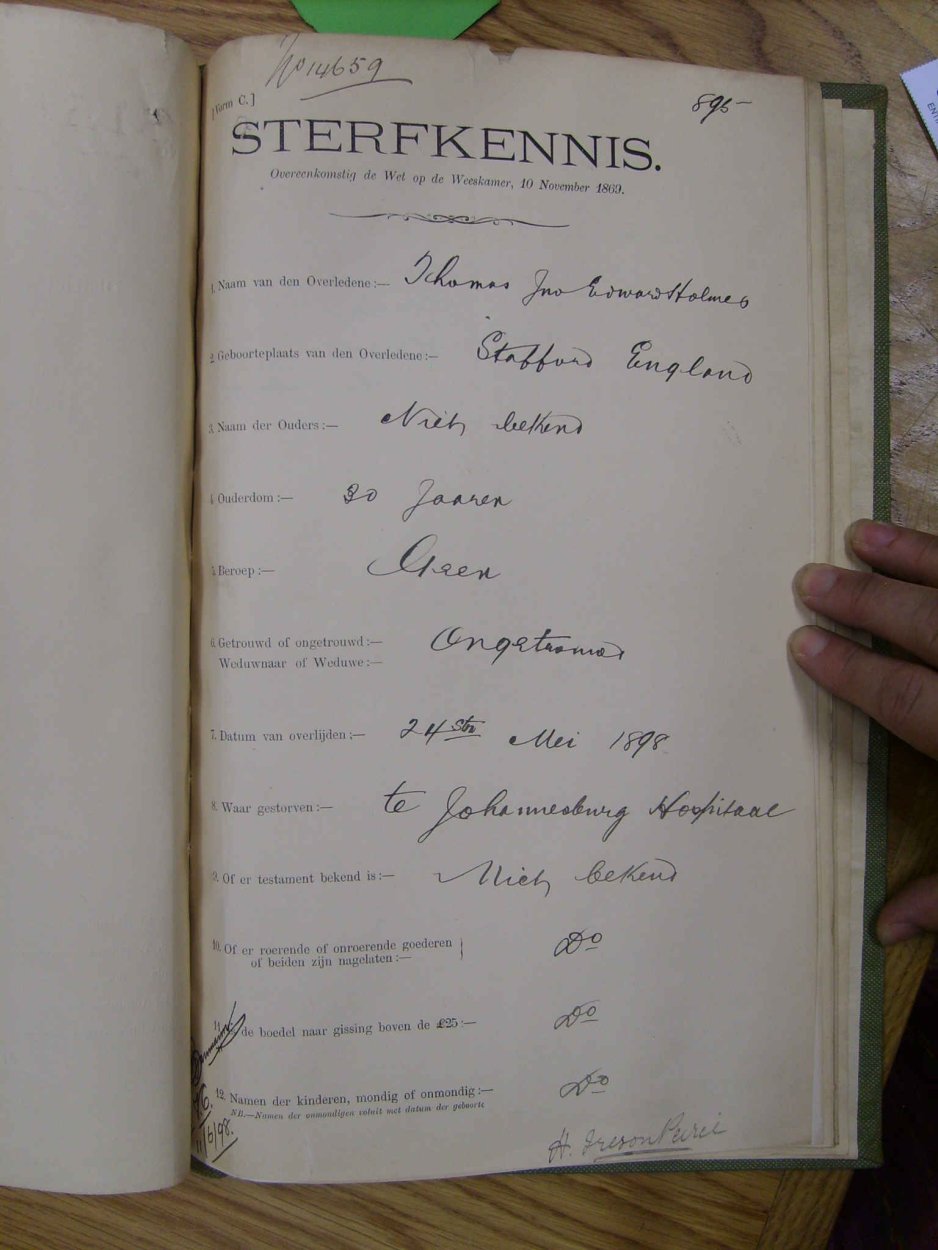 No 14659
895
[Form C.]
STERFKENNIS.
Overeenkomstig de Wet op de Weeskamer, 10 November 1869.
1. Naam van den Overledene :— Thomas Jno Edward Holmes
2. Geboorteplaats van den Overledene :— Stafford England
3. Naam der Ouders :— Niet bekend
4. Ouderdom :— 30 Jaaren
5. Beroep :— Geen
6. Getrouwd of ongetrouwd :— Ongetrouwd
Weduwnaar of Weduwe :—
7. Datum van overlijden :— 24ste Mei 1898
8. Waar gestorven :— te Johannesburg Hospitaal
9. Of er testament bekend is :— Niet bekend
10. Of er roerende of onroerende goederen
of beiden zijn nagelaten :— Do
11. de boedel naar gissing boven de £25 :— Do
12. Namen der kinderen, mondig of onmondig :— Do
NB.—Namen der onmondigen voluit met datum der geboorte
11/6/98.
H. Ireson